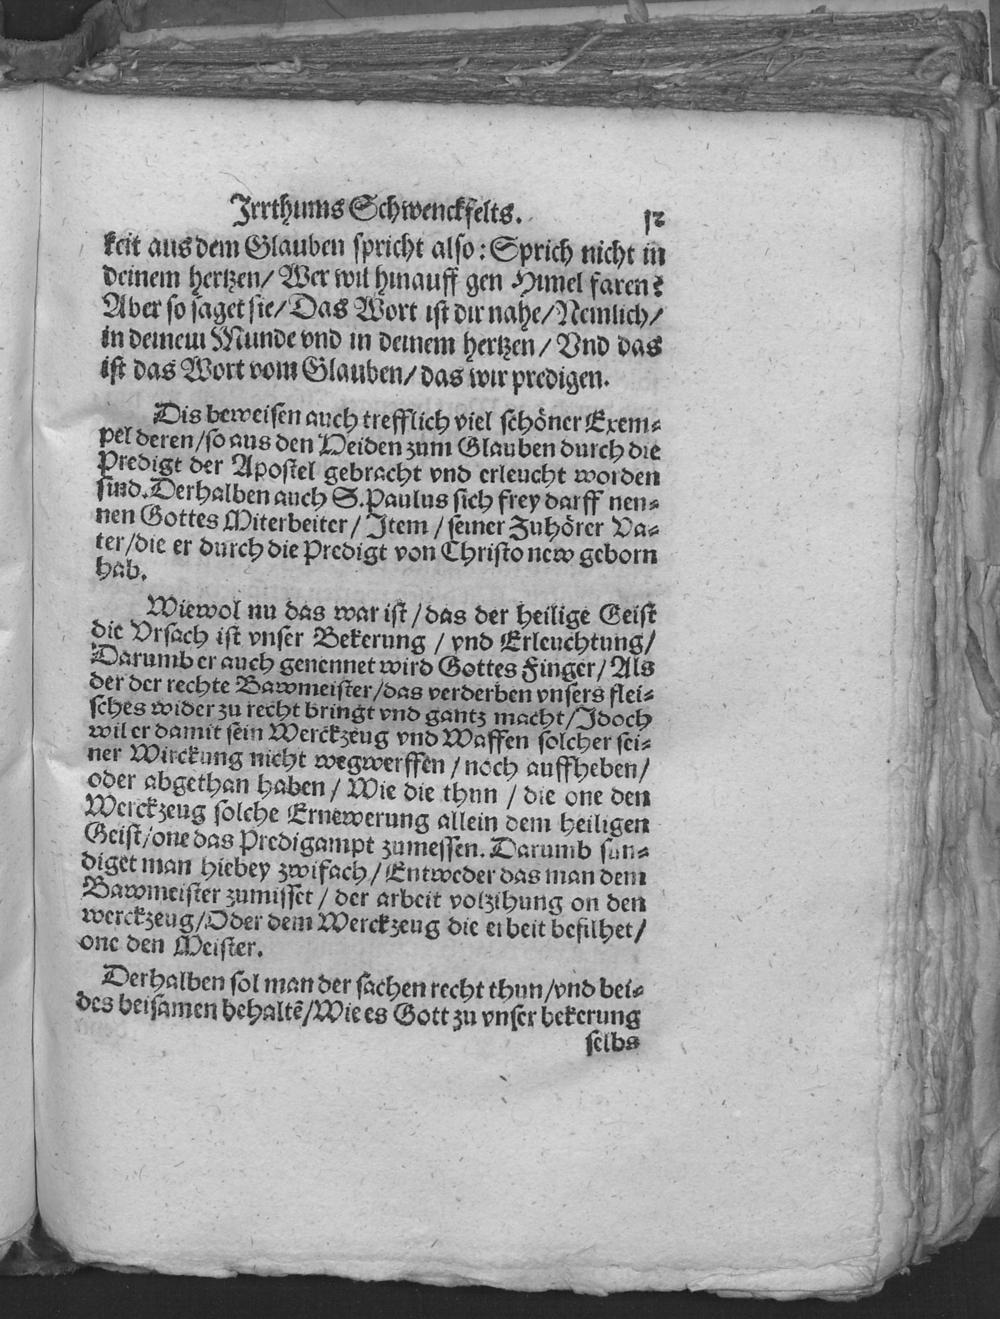 Irrthums Schwenckfelts. 52
keit aus dem Glauben spricht also: Sprich nicht in
deinem hertzen/ Wer wil hinauff gen Himel faren?
Aber so saget sie/ Das Wort ist dir nahe/ Nemlich/
in deinem Munde vnd in deinem hertzen/ Vnd das
ist das Wort vom Glauben/ das wir predigen.
Dis beweisen auch trefflich viel schöner Exem⸗
pel deren/ so aus den Heiden zum Glauben durch die
Predigt der Apostel gebracht vnd erleucht worden
sind. Derhalben auch S. Paulus sich frey darff nen⸗
nen Gottes Miterbeiter/ Item/ seiner Zuhörer Va⸗
ter/ die er durch die Predigt von Christo new geborn
hab.
Wiewol nu das war ist/ das der heilige Geist
die Vrsach ist vnser Bekerung/ vnd Erleuchtung/
Darumb er auch genennet wird Gottes Finger/ Als
der der rechte Bawmeister/ das verderben vnsers flei⸗
sches wider zu recht bringt vnd gantz macht/ Idoch
wil er damit sein Werckzeug vnd Waffen solcher sei⸗
ner Wirckung nicht wegwerffen/ noch auffheben/
oder abgethan haben/ Wie die thun/ die one den
Werckzeug solche Ernewerung allein dem heiligen
Geist/ one das Predigampt zumessen. Darumb sün⸗
diget man hiebey zwifach/ Entweder das man dem
Bawmeister zumisset/ der arbeit volzihung on den
werckzeug/ Oder dem Werckzeug die erbeit befilhet/
one den Meister.
Derhalben sol man der sachen recht thun/ vnd bei⸗
des beisamen behaltē/ Wie es Gott zu vnser bekerung
selbs